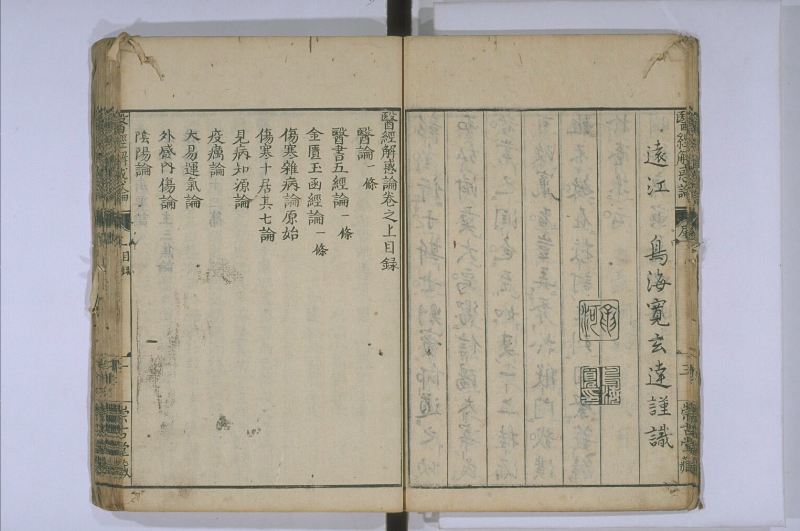 醫經解惑論
序
三
崇古堂藏
遠江 鳥海寛玄達謹識
醫經解惑論卷之上目録
醫論一條
醫書五經論一條
金匱玉函經論一條
傷寒雜病論原始
傷寒十居其七論
見病知源論
疫癘論
大易運氣論
外感内傷論
陰陽論
醫經解惑論
上目録
一
崇古堂藏